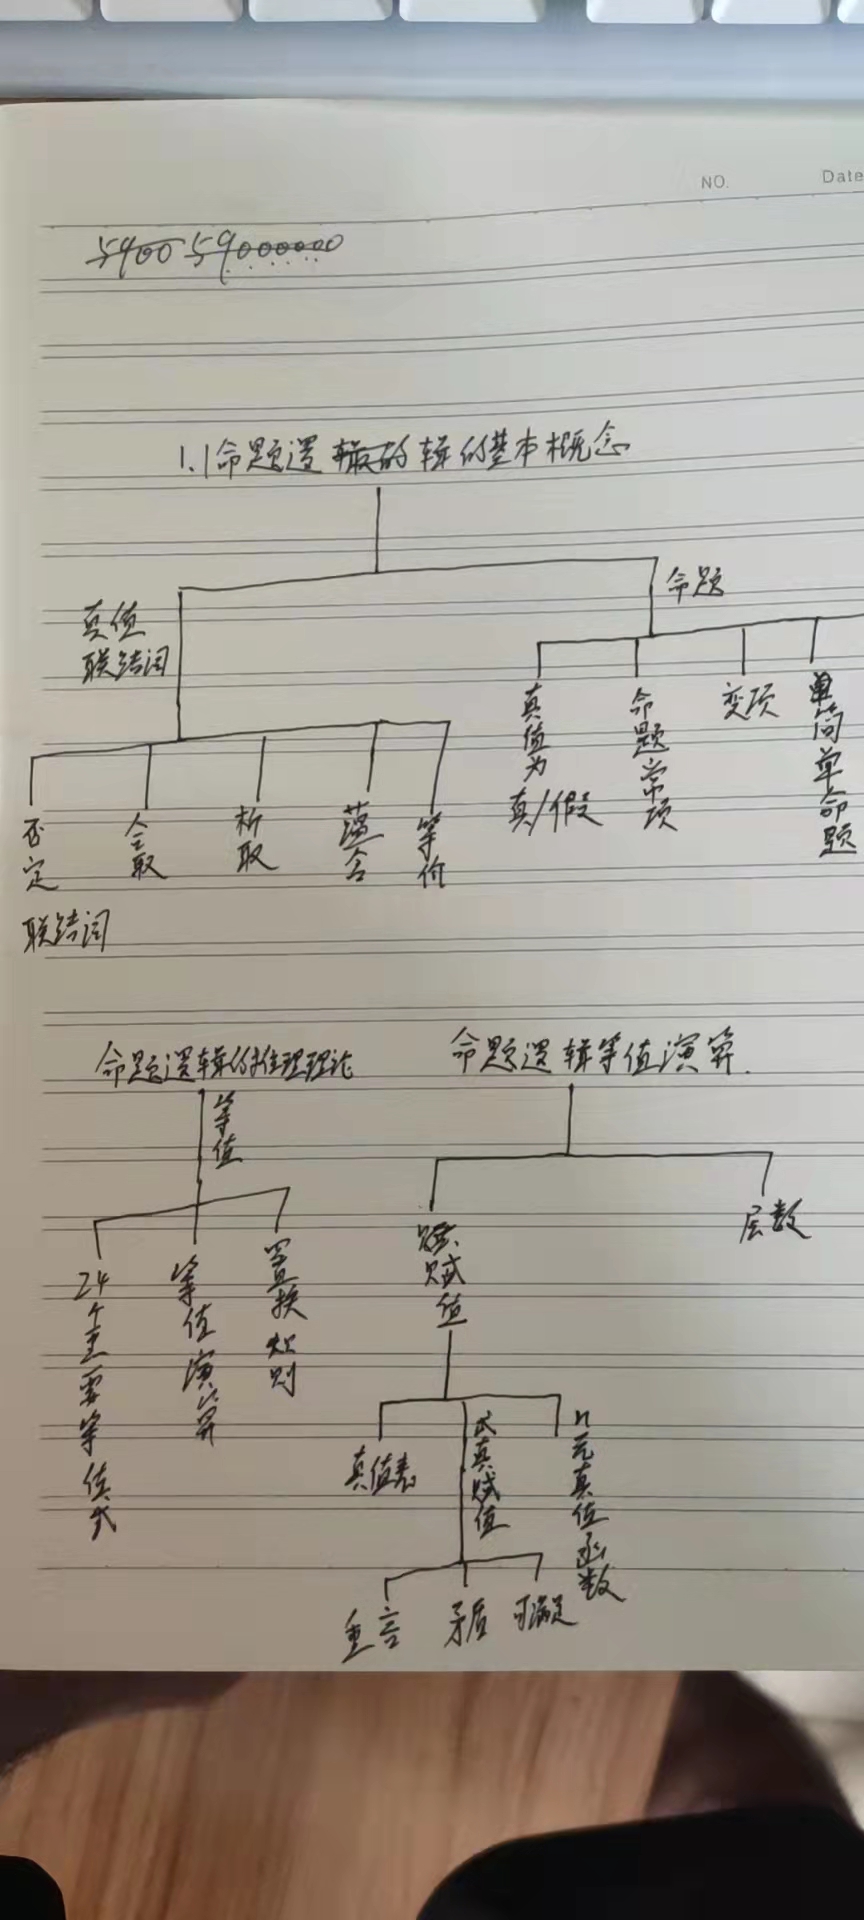 NO.
Date
5900 59000000
1.1命题逻辑的基本概念
命题
真值
联结词
真值为真/假
命题常项
变项
简单命题
否定
合取
析取
蕴含
等价
联结词
命题逻辑的推理理论
命题逻辑等值演算.
等值
24个重要等值式
等值演算
置换规则
赋值
层数
真值表
成真赋值
n元真值函数
重言
矛盾
可满足